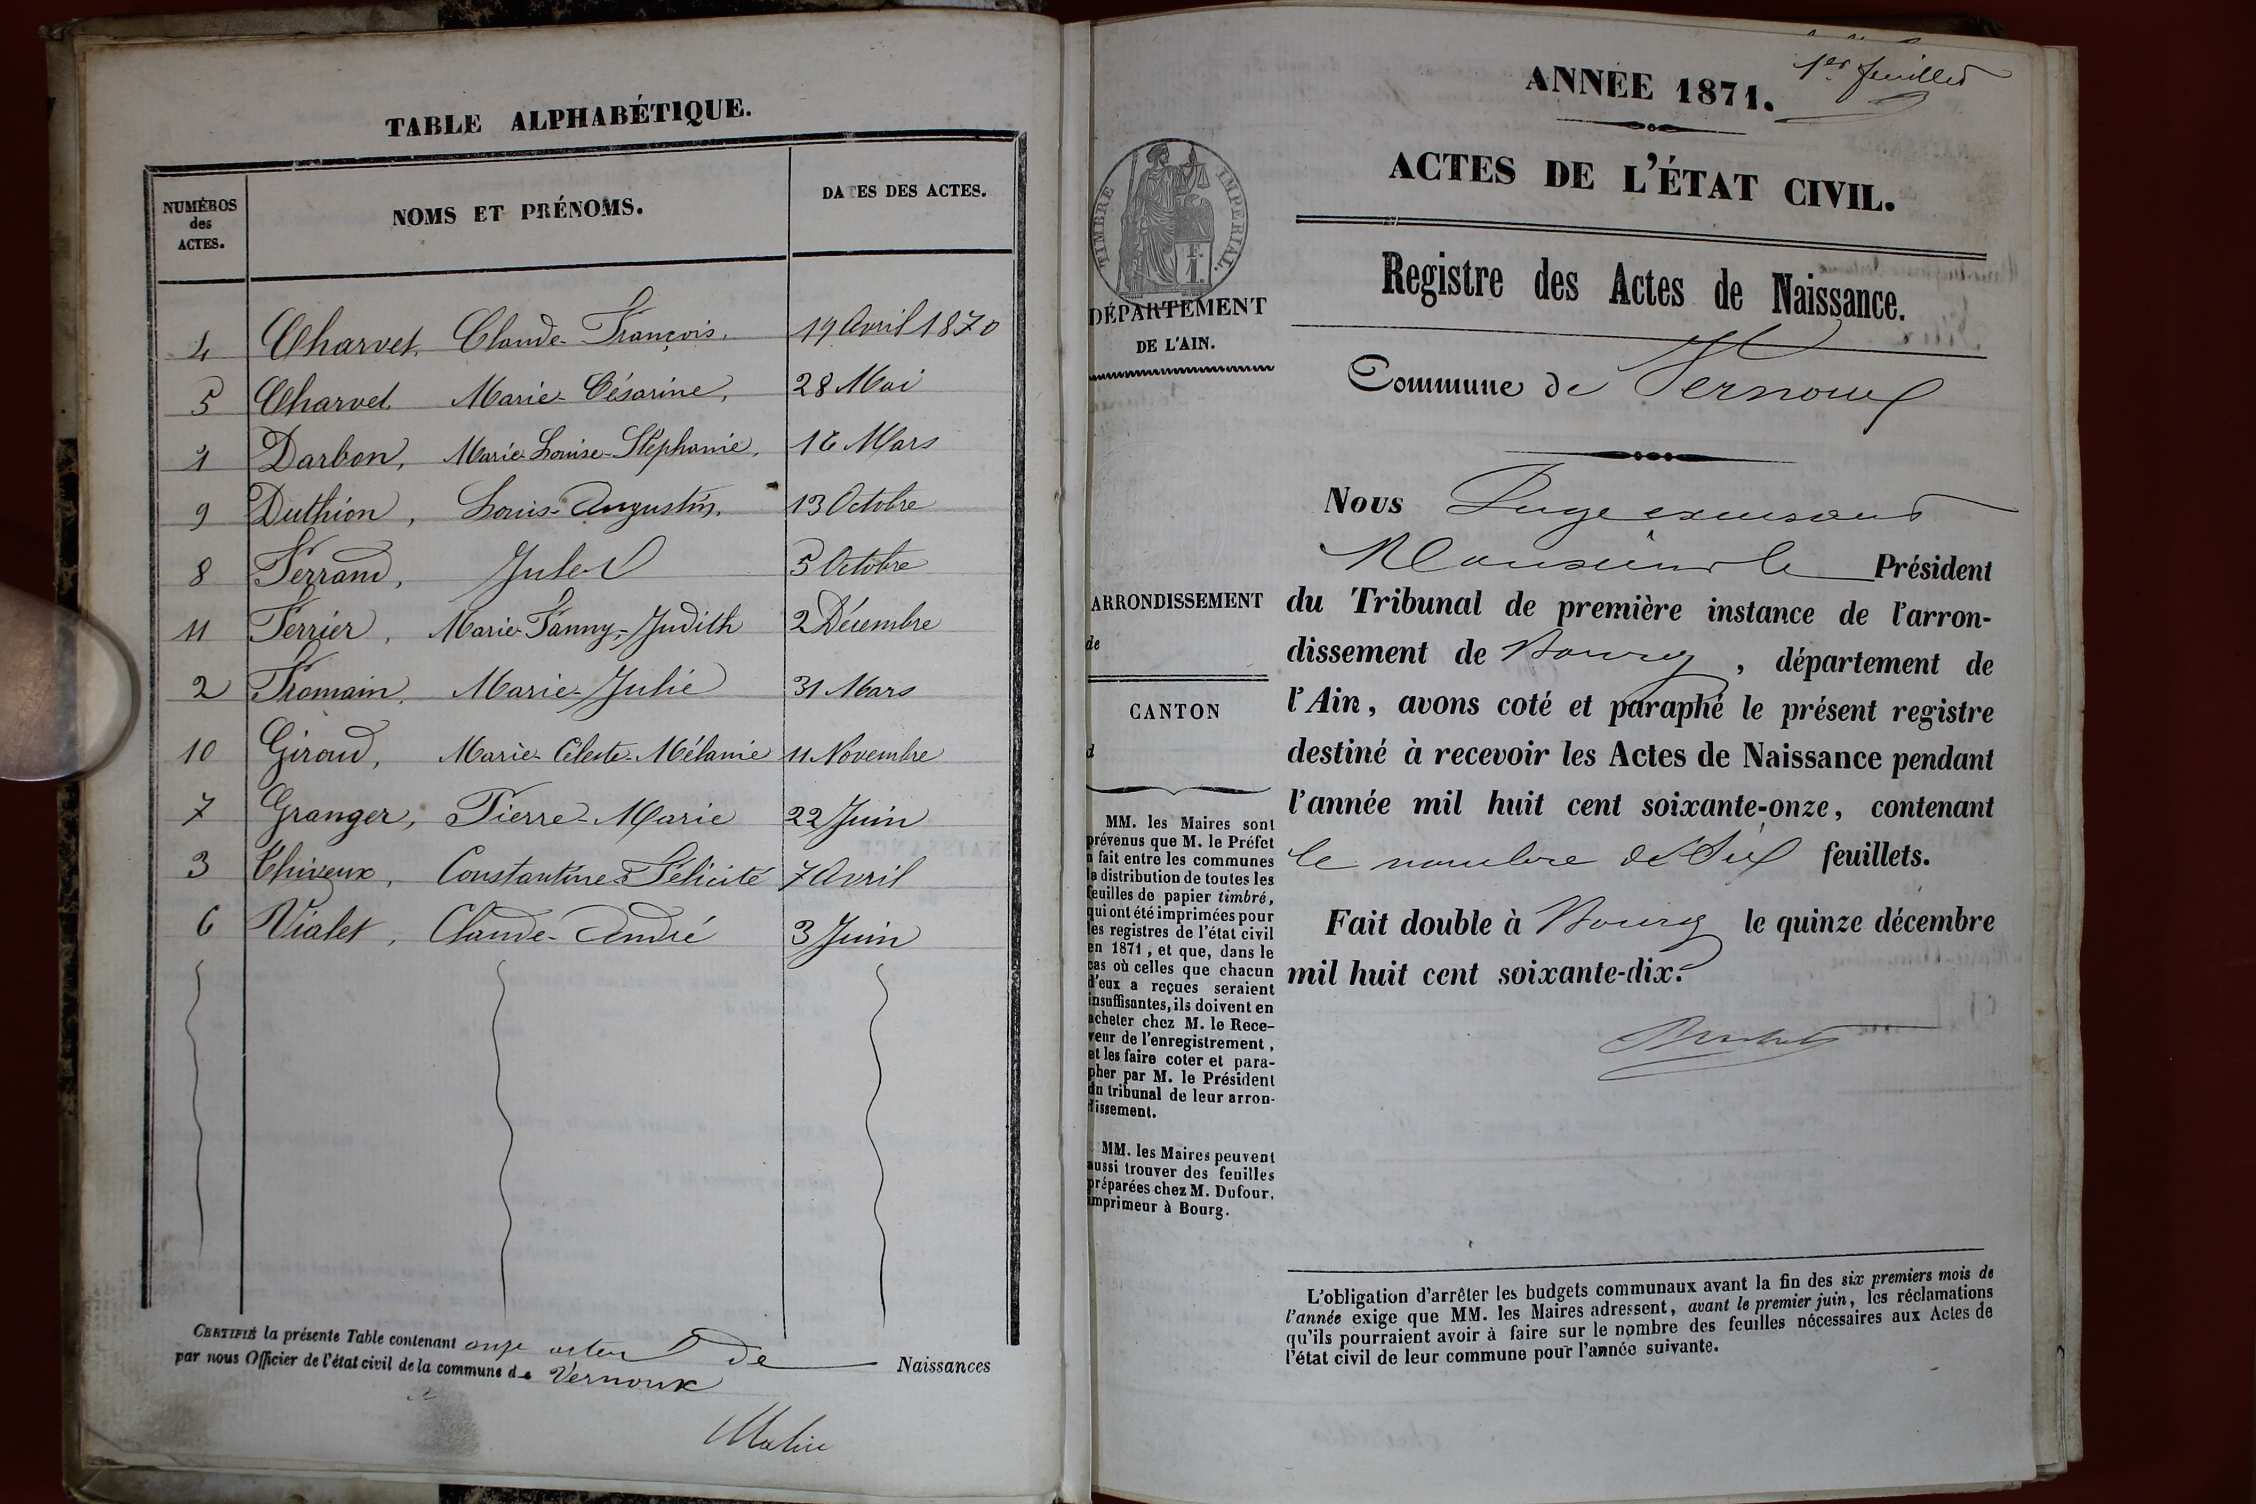 TABLE ALPHABÉTIQUE.
NUMÉROS des ACTES. NOMS ET PRÉNOMS. DATES DES ACTES.
4 Charvet, Claude-François, 19 Avril 1870
5 Charvet Marie-Césarine, 28 Mai
1 Darbon, Marie-Louise-Stéphanie, 16 Mars
9 Duthion, Louis-Augustin, 13 Octobre
8 Ferrand, Jules 5 Octobre
11 Ferrier, Marie-Fanny-Judith 2 Décembre
2 Fromain, Marie-Julie 31 Mars
10 Giroud, Marie-Céleste-Mélanie 11 Novembre
7 Granger, Pierre-Marie 22 Juin
3 Thiveux, Constantine-Félicité 7 Avril
6 Vialet, Claude-André 3 Juin
CERTIFIÉ la présente Table contenant onze actes de Naissances
par nous Officier de l'état civil de la commune de Vernoux
1er feuillet
ANNÉE 1871.
ACTES DE L'ÉTAT CIVIL.
TIMBRE IMPERIAL.
F. 1.
DÉPARTEMENT
DE L'AIN.
ARRONDISSEMENT
de
CANTON
d
MM. les Maires sont
prévenus que M. le Préfet
a fait entre les communes
la distribution de toutes les
feuilles de papier timbré,
qui ont été imprimées pour
les registres de l'état civil
en 1871, et que, dans le
cas où celles que chacun
d'eux a reçues seraient
insuffisantes, ils doivent en
acheter chez M. le Rece-
veur de l'enregistrement,
et les faire coter et para-
pher par M. le Président
du tribunal de leur arron-
dissement.
MM. les Maires peuvent
aussi trouver des feuilles
préparées chez M. Dufour,
imprimeur à Bourg.
Registre des Actes de Naissance.
Commune de Vernoux
Nous Juge
Monsieur le Président
du Tribunal de première instance de l'arron-
dissement de Bourg, département de
l'Ain, avons coté et paraphé le présent registre
destiné à recevoir les Actes de Naissance pendant
l'année mil huit cent soixante-onze, contenant
le nombre de Six feuillets.
Fait double à Bourg le quinze décembre
mil huit cent soixante-dix.
L'obligation d'arrêter les budgets communaux avant la fin des six premiers mois de
l'année exige que MM. les Maires adressent, avant le premier juin, les réclamations
qu'ils pourraient avoir à faire sur le nombre des feuilles nécessaires aux Actes de
l'état civil de leur commune pour l'année suivante.